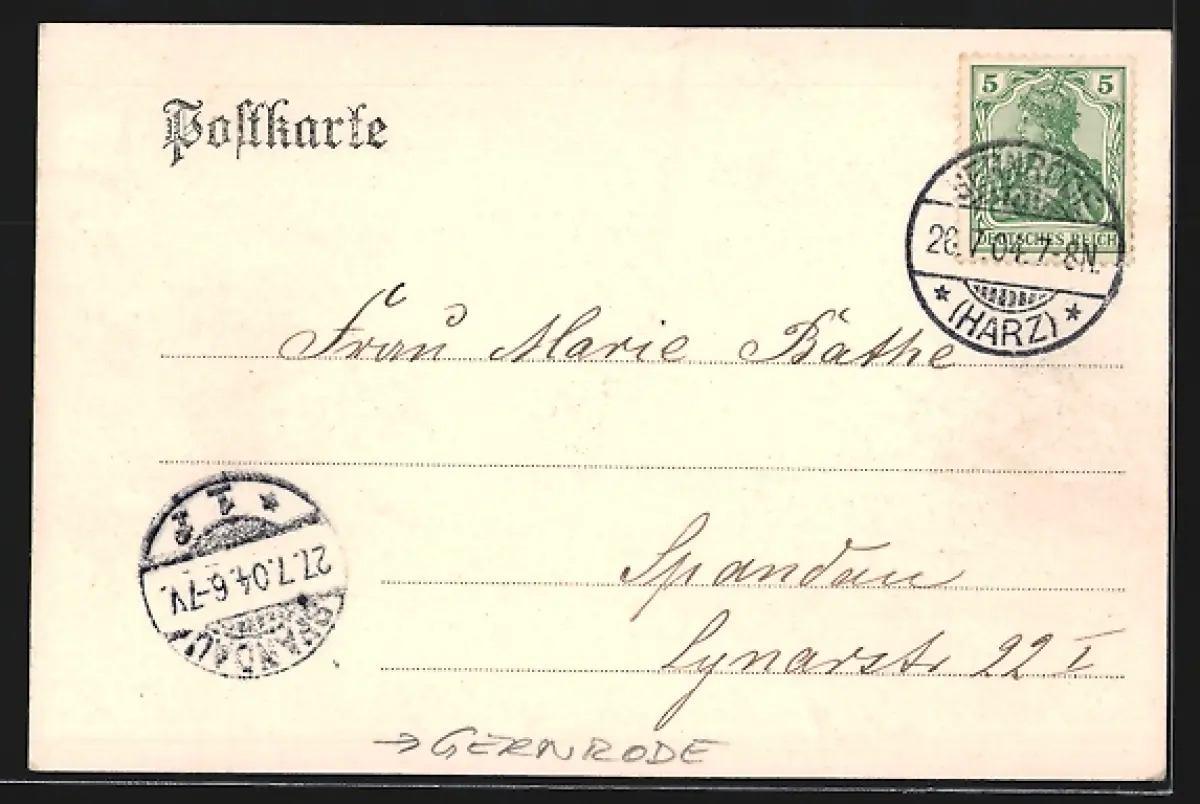 Postkarte
5 5
DEUTSCHES REICH
GERNRODE
26.7.04.7-8N.
* (HARZ) *
Frau Marie Bäthe
* 1
27.7.04.6-7V.
SPANDAU
Spandau
Lynarstr 22 I
→ GERNRODE